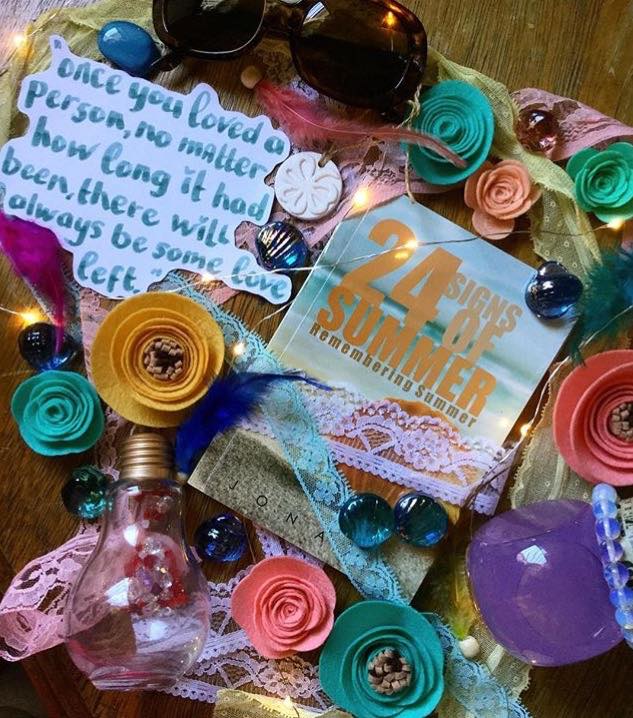 "once you loved a
person, no matter
how long it had
been, there will
always be some love
left."
24
SIGNS
OF
SUMMER
Remembering Summer
JONA